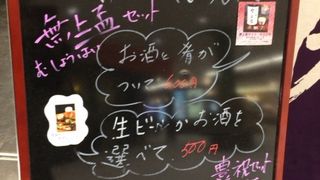 無上盃セット
むじょうはい
お酒と肴が
ついて 600円
生ビールかお酒を
選べて 500円
豊祝セット